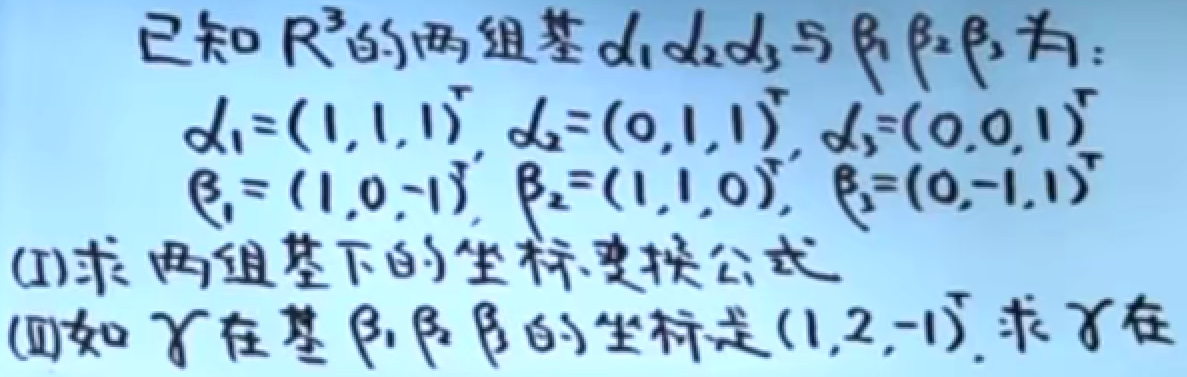 已知 R³的两组基 α₁α₂α₃与 β₁ β₂ β₃ 为:
α₁=(1,1,1)ᵀ, α₂=(0,1,1)ᵀ, α₃=(0,0,1)ᵀ
β₁=(1,0,-1)ᵀ, β₂=(1,1,0)ᵀ, β₃=(0,-1,1)ᵀ
(I)求 两组基下的坐标变换公式
(II)如 γ在基 β₁ β₂ β₃ 的坐标是(1,2,-1)ᵀ. 求 γ在